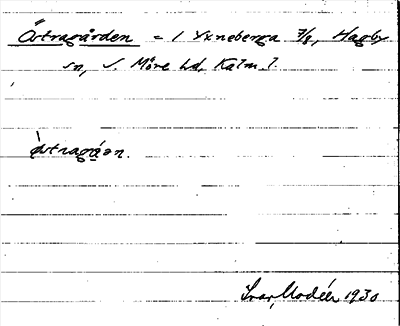 Östragården = 1 Vkneberga 7/8, Hagby
sn, S. Möre hd, Kalm. l.
östragåan.
Ivar Modéer 1930